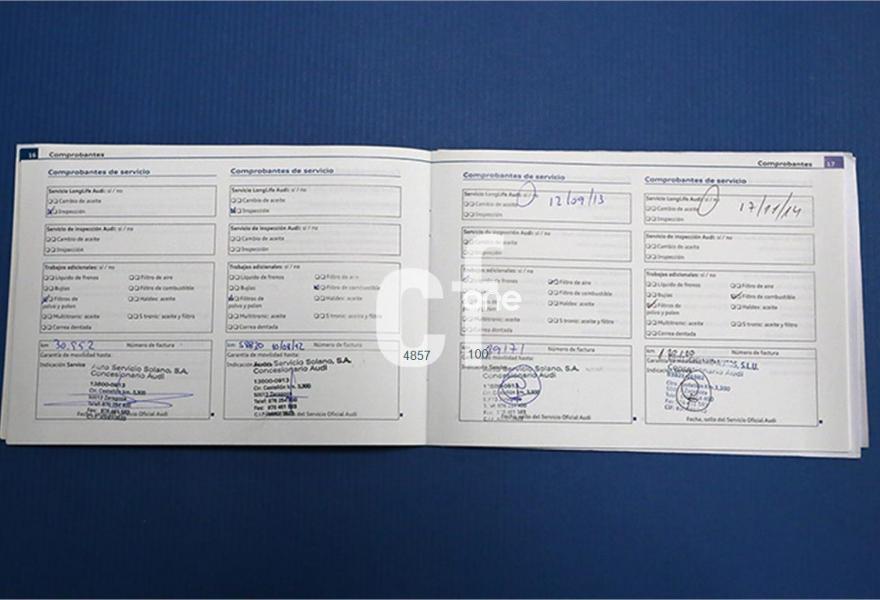 16 Comprobantes
Comprobantes de servicio
Servicio LongLife Audi: sí / no
Cambio de aceite
Inspección
Servicio de inspección Audi: sí / no
Cambio de aceite
Inspección
Trabajos adicionales: sí / no
Líquido de frenos
Filtro de aire
Bujías
Filtro de combustible
Filtros de
polvo y polen
Haldex: aceite
Multitronic: aceite
S tronic: aceite y filtro
Correa dentada
km: 30.952 Número de factura
Garantía de movilidad hasta:
Indicación Service
Auto Servicio Solano, S.A.
Concesionario Audi
13800-0913
Ctr. Castellón km. 3,300
50013 Zaragoza
Fax: 976 461 593
Fecha, sello del Servicio Oficial Audi
Comprobantes de servicio
Servicio LongLife Audi: sí / no
Cambio de aceite
Inspección
Servicio de inspección Audi: sí / no
Cambio de aceite
Inspección
Trabajos adicionales: sí / no
Líquido de frenos
Filtro de aire
Bujías
Filtro de combustible
Filtros de
polvo y polen
Haldex: aceite
Multitronic: aceite
S tronic: aceite y filtro
Correa dentada
km: 10/08/12 Número de factura
Garantía de movilidad hasta:
Indicación Service
Auto Servicio Solano, S.A.
Concesionario Audi
13800-0913
Ctr. Castellón km. 3,300
50013 Zaragoza
Fax: 976 461 593
Fecha, sello del Servicio Oficial Audi
Comprobantes 17
Comprobantes de servicio
Servicio LongLife Audi: sí / no
Cambio de aceite
12/09/13
Inspección
Servicio de inspección Audi: sí / no
Cambio de aceite
Inspección
Trabajos adicionales: sí / no
Líquido de frenos
Filtro de aire
Bujías
Filtro de combustible
Filtros de
polvo y polen
Haldex: aceite
Multitronic: aceite
S tronic: aceite y filtro
Correa dentada
Número de factura
Garantía de movilidad hasta:
Servicio Solano, S.A.
Concesionario Audi
Fecha, sello del Servicio Oficial Audi
Comprobantes de servicio
Servicio LongLife Audi: sí / no
Cambio de aceite
17/11/14
Inspección
Servicio de inspección Audi: sí / no
Cambio de aceite
Inspección
Trabajos adicionales: sí / no
Líquido de frenos
Filtro de aire
Bujías
Filtro de combustible
Filtros de
polvo y polen
Haldex: aceite
Multitronic: aceite
S tronic: aceite y filtro
Correa dentada
km: Número de factura
Concesionario Audi
Fecha, sello del Servicio Oficial Audi
c one
4857 100